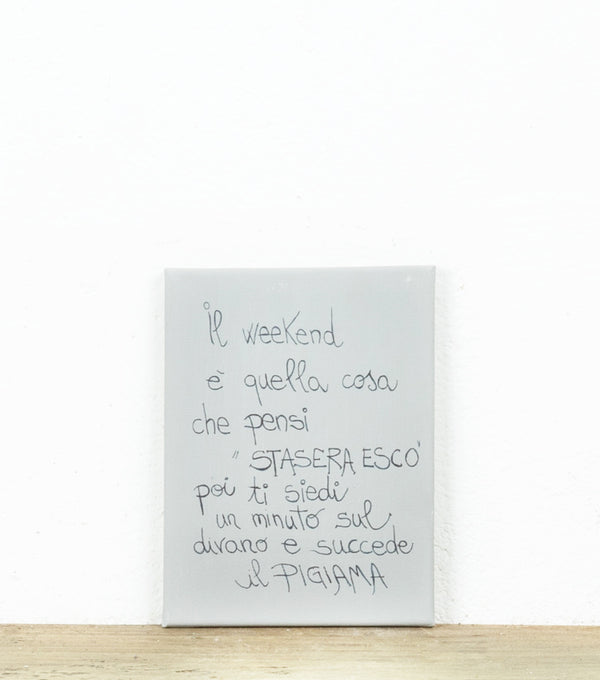 il weeKend
è quella cosa
che pensi
"STASERA ESCO"
poi ti siedi
un minuto sul
divano e succede
il PIGIAMA